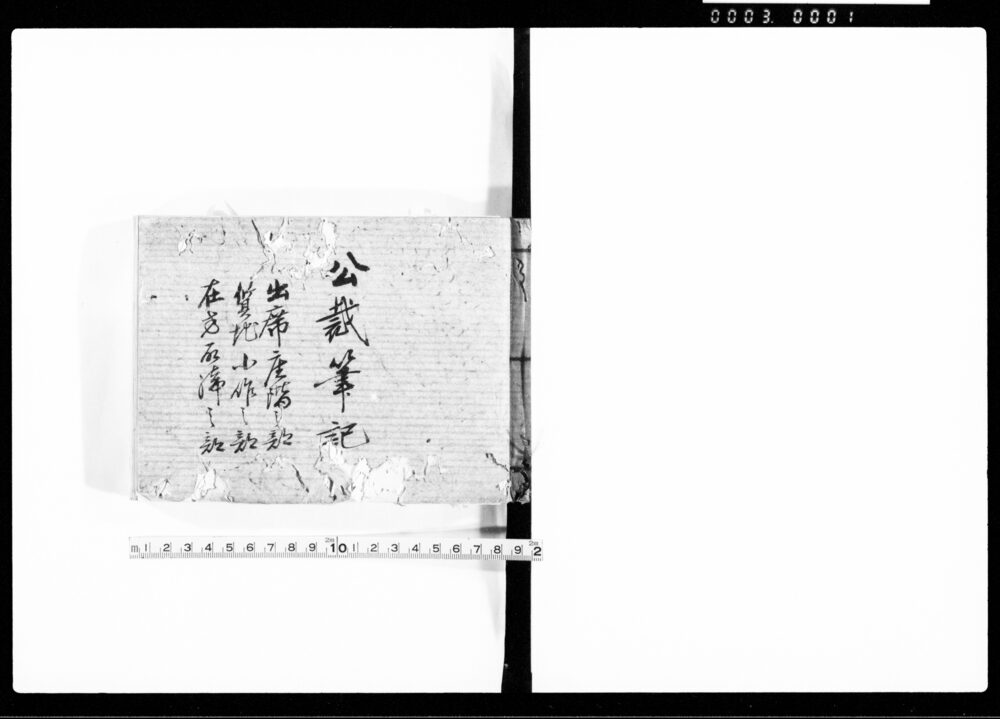 0003. 0001
公裁筆記
出席座階之部
質地小作之部
在方取濟之部
m 1 2 3 4 5 6 7 8 9 10 1 2 3 4 5 6 7 8 9 2
2m 2m